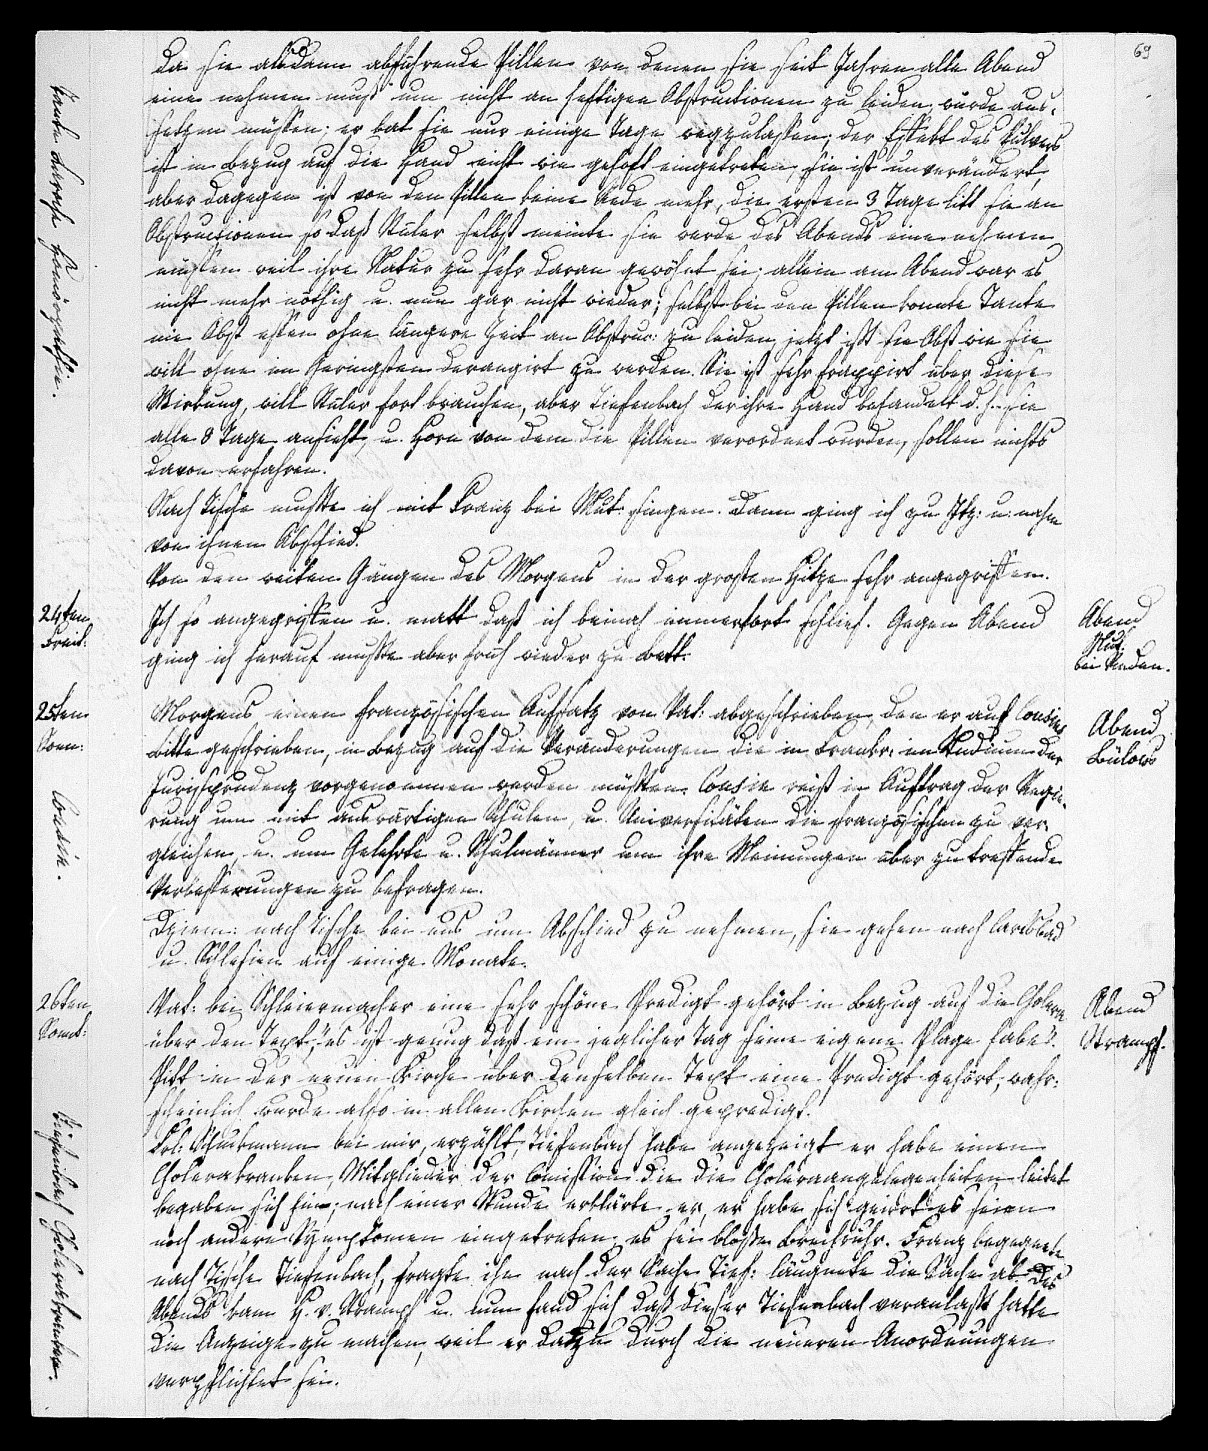 69
Da sie alsdann abführende Pillen von denen sie seit Jahren alle Abend
eine nehmen muß um nicht an heftigen Obstructionen zu leiden, würde aus-
setzen müssen; er bat sie nur einige Tage wegzulassen; der Effekt des Pulvers
ist in Bezug auf die Hand nicht wie gehofft eingetreten, sie ist unverändert,
aber dagegen ist von den Pillen keine Rede mehr, die ersten 3 Tage litt sie an
Obstructionen so daß Stüler selbst meinte sie werde des Abends eine nehmen
müssen weil ihre Natur zu sehr daran gewöhnt sei; allein am Abend war es
nicht mehr nöthig u. nun gar nicht wieder; selbst bei den Pillen konnte Tante
nie Obst essen ohne längere Zeit an Obstruc: zu leiden jetzt ißt sie Obst wie sie
will ohne im Geringsten derangirt zu werden. Sie ist sehr frappirt über diese
Wirkung, will Stüler fort brauchen, aber Tiefenbach der ihre Hand behandelt d. h. sie
alle 8 Tage ansieht, u. Horn von dem die Pillen verordnet wurden, sollen nichts
davon erfahren.
Tante durch Homöopathie.
Nach Tische mußte ich mit Franz bei Mut: singen. Dann ging ich zu Itz: u. nahm
von ihnen Abschied.
Von den weiten Gängen des Morgens in der großen Hitze sehr angegriffen.
24sten
Freit:
Ich so angegriffen u. matt daß ich beinah immerfort schlief. Gegen Abend
ging ich herauf mußte aber früh wieder zu Bett.
Abend
Mut:
bei
25sten
Sonn:
Morgens einen französischen Aufsatz von Vat: abgeschrieben den er auf Cousins
Bitte geschrieben, in Bezug auf die Veränderungen die in Frankr: im Studium der
Jurisprudenz vorgenommen werden müßten. Cousin reist in Auftrag der Regie-
rung um mit auswärtigen Schulen, u. Universitäten die französischen zu ver-
gleichen, u. um Gelehrte u. Schulmänner um ihre Meinungen über zu treffende
Verbesserungen zu befragen.
Cousin.
Abend
Bülows
Dziem: nach Tische bei uns um Abschied zu nehmen, sie gehen nach Carlsbad
u. Schlesien auf einige Monate.
26sten
Sonnt:
Vat: bei Schleiermacher eine sehr schöne Predigt gehört in Bezug auf die Cholera
über den Text, "es ist genug daß ein jeglicher Tag seine eigene Plage habe".
Pitt in der neuen Kirche über denselben Text eine Predigt gehört, wahr-
scheinlich wurde also in allen Kirchen gleich gepredigt.
Abend
Strampf.
Col: Schuckmann bei mir, erzählt, Tiefenbach habe angezeigt er habe einen
Cholerakranken, Mitglieder der Comission die die Choleraangelegenheiten leitet
begaben sich hin; nach einer Stunde erklärte er, er habe sich geirrt es seien
noch andere Symptomen eingetreten, es sei bloße Brechruhr. Franz begegnete
nach Tische Tiefenbach, fragte ihn nach der Sache, Tief: läugnete die Sache ab. Des
Abends kam H. v. Strampf u. nun fand sich daß dieser Tiefenbach veranlaßt hatte
die Anzeige zu machen, weil er dazu durch die neueren Anordnungen
verpflichtet sei.
Tiefenbach Cholerakranker.